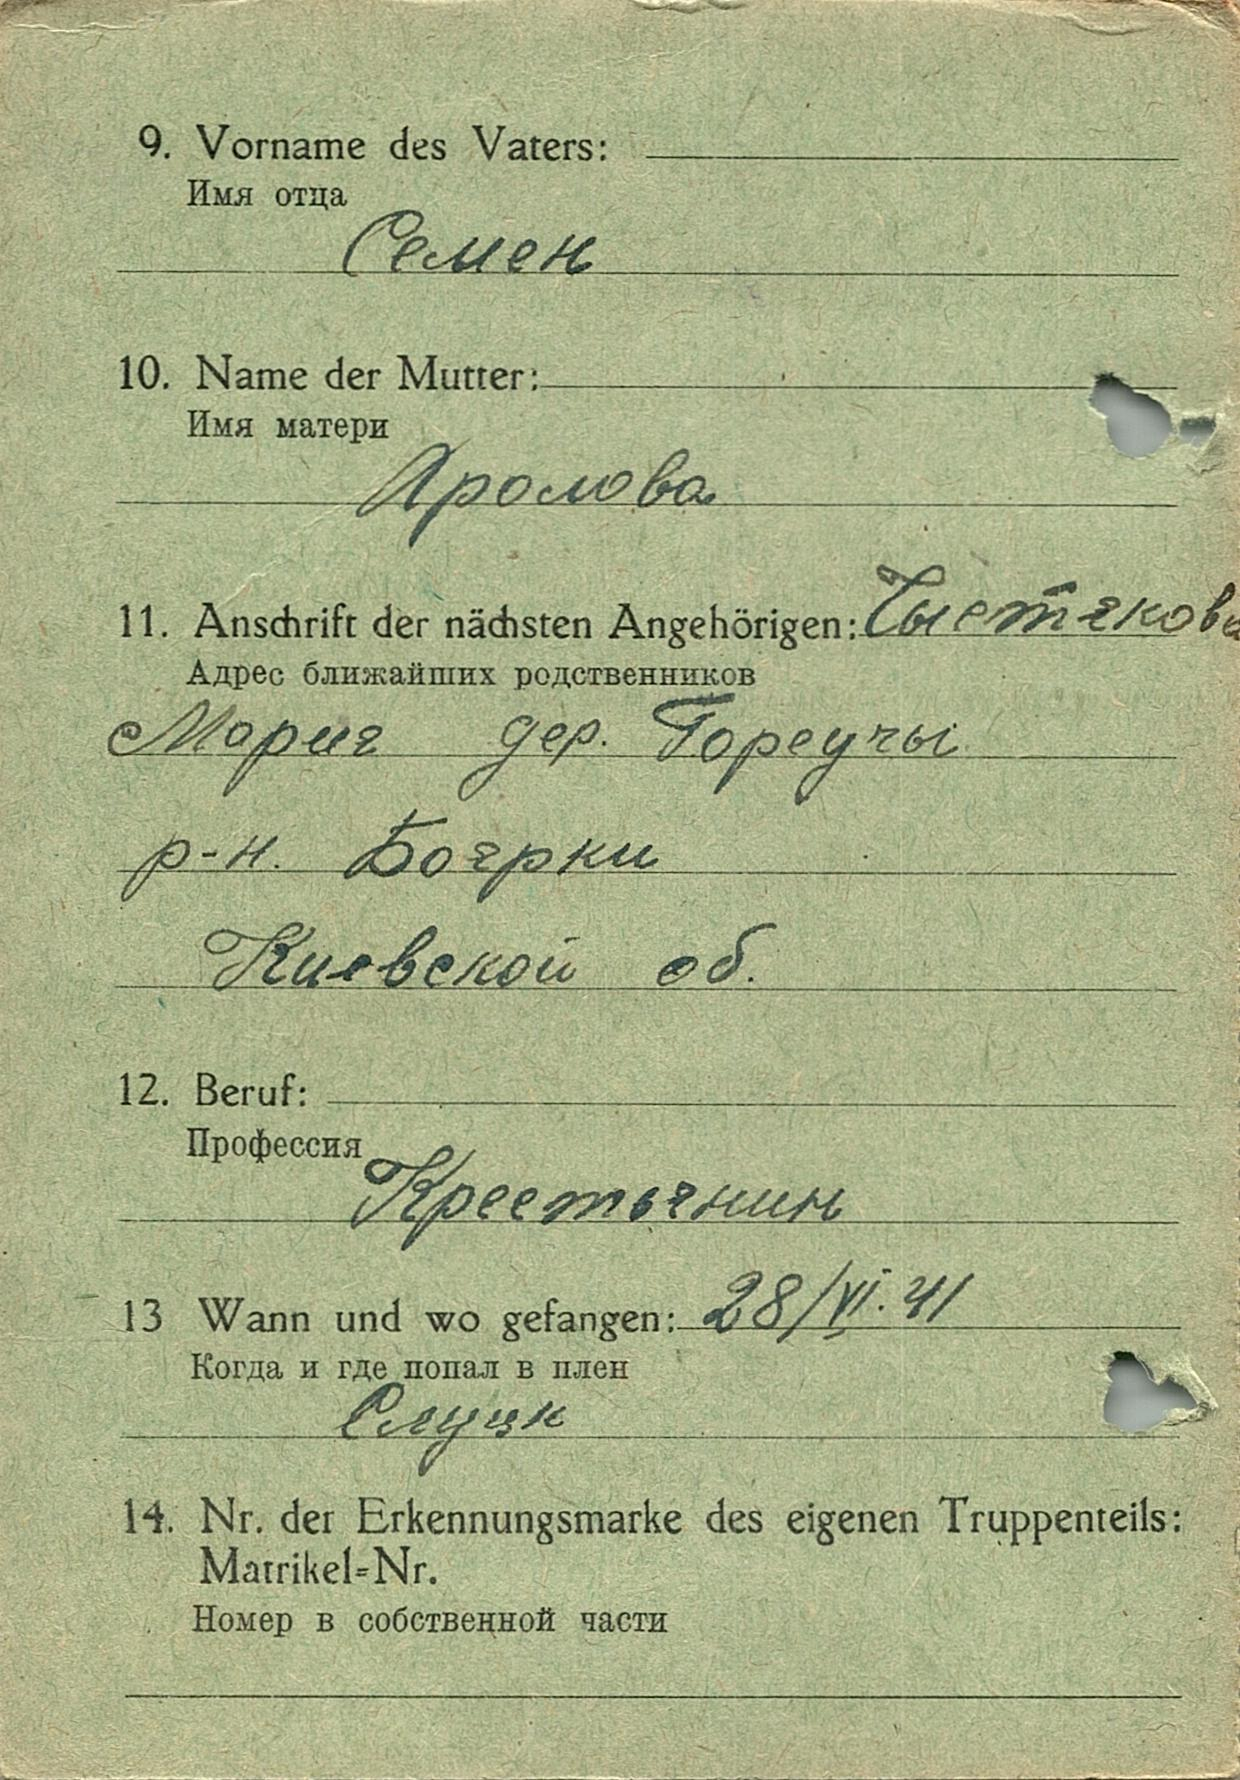 9. Vorname des Vaters:
Имя отца
Семен
10. Name der Mutter:
Имя матери
Хромова
11. Anschrift der nächsten Angehörigen: Чыстякова
Адрес ближайших родственников
Мария дер. Гореучы
р-н. Боярки
Киевской об.
12. Beruf:
Профессия
Крестьянин
13 Wann und wo gefangen: 28/VI.41
Когда и где попал в плен
Слуцк
14. Nr. der Erkennungsmarke des eigenen Truppenteils:
Matrikel-Nr.
Номер в собственной части